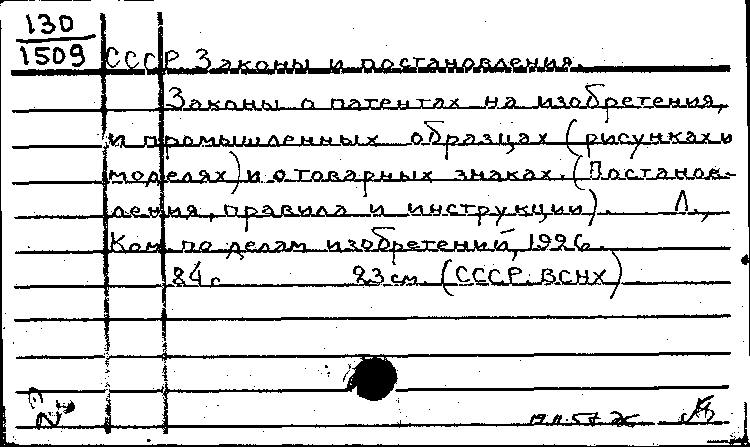 130
1509
СССР. Законы и постановления.
Законы о патентах на изобретения,
и промышленных образцах (рисунках и
моделях) и о товарных знаках. (Постанов-
ления, правила и инструкции). Л.,
Ком. по делам изобретений, 1926.
84с. 23 см. (СССР. ВСНХ)